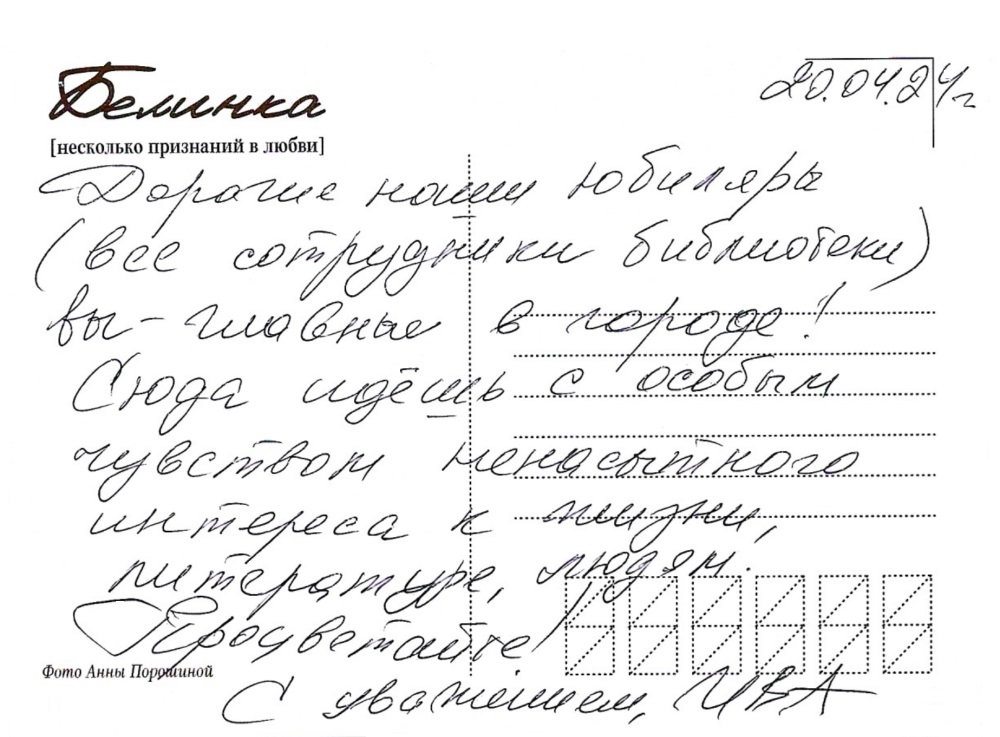 Белинка
20.04.24г
[несколько признаний в любви]
Дорогие наши юбиляры
(все сотрудники библиотеки)
вы – главные в городе!
Сюда идёшь с особым
чувством ненасытного
интереса к жизни,
литературе, людям.
Процветайте!
Фото Анны Порошиной
С уважением, ИВА